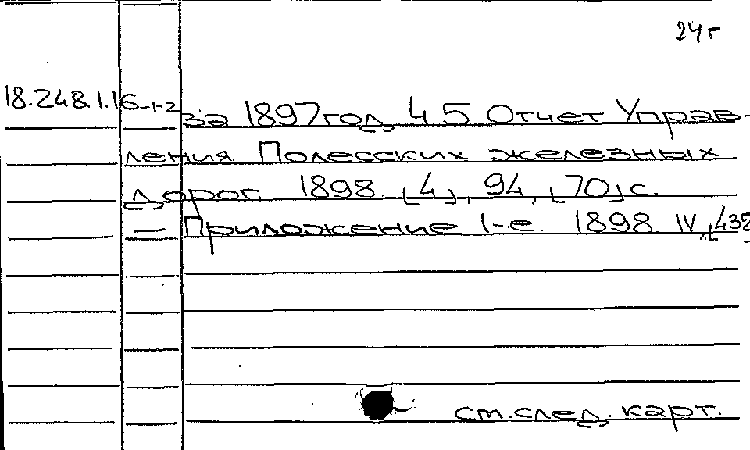 24 г
18.248.1.16-1-2 за 1897 год. Ч. 5. Отчет Управ-
ления Полесских железных
дорог. 1898. [4], 94, [70] с.
— Приложение 1-е. 1898. IV, [438
см. след. карт.